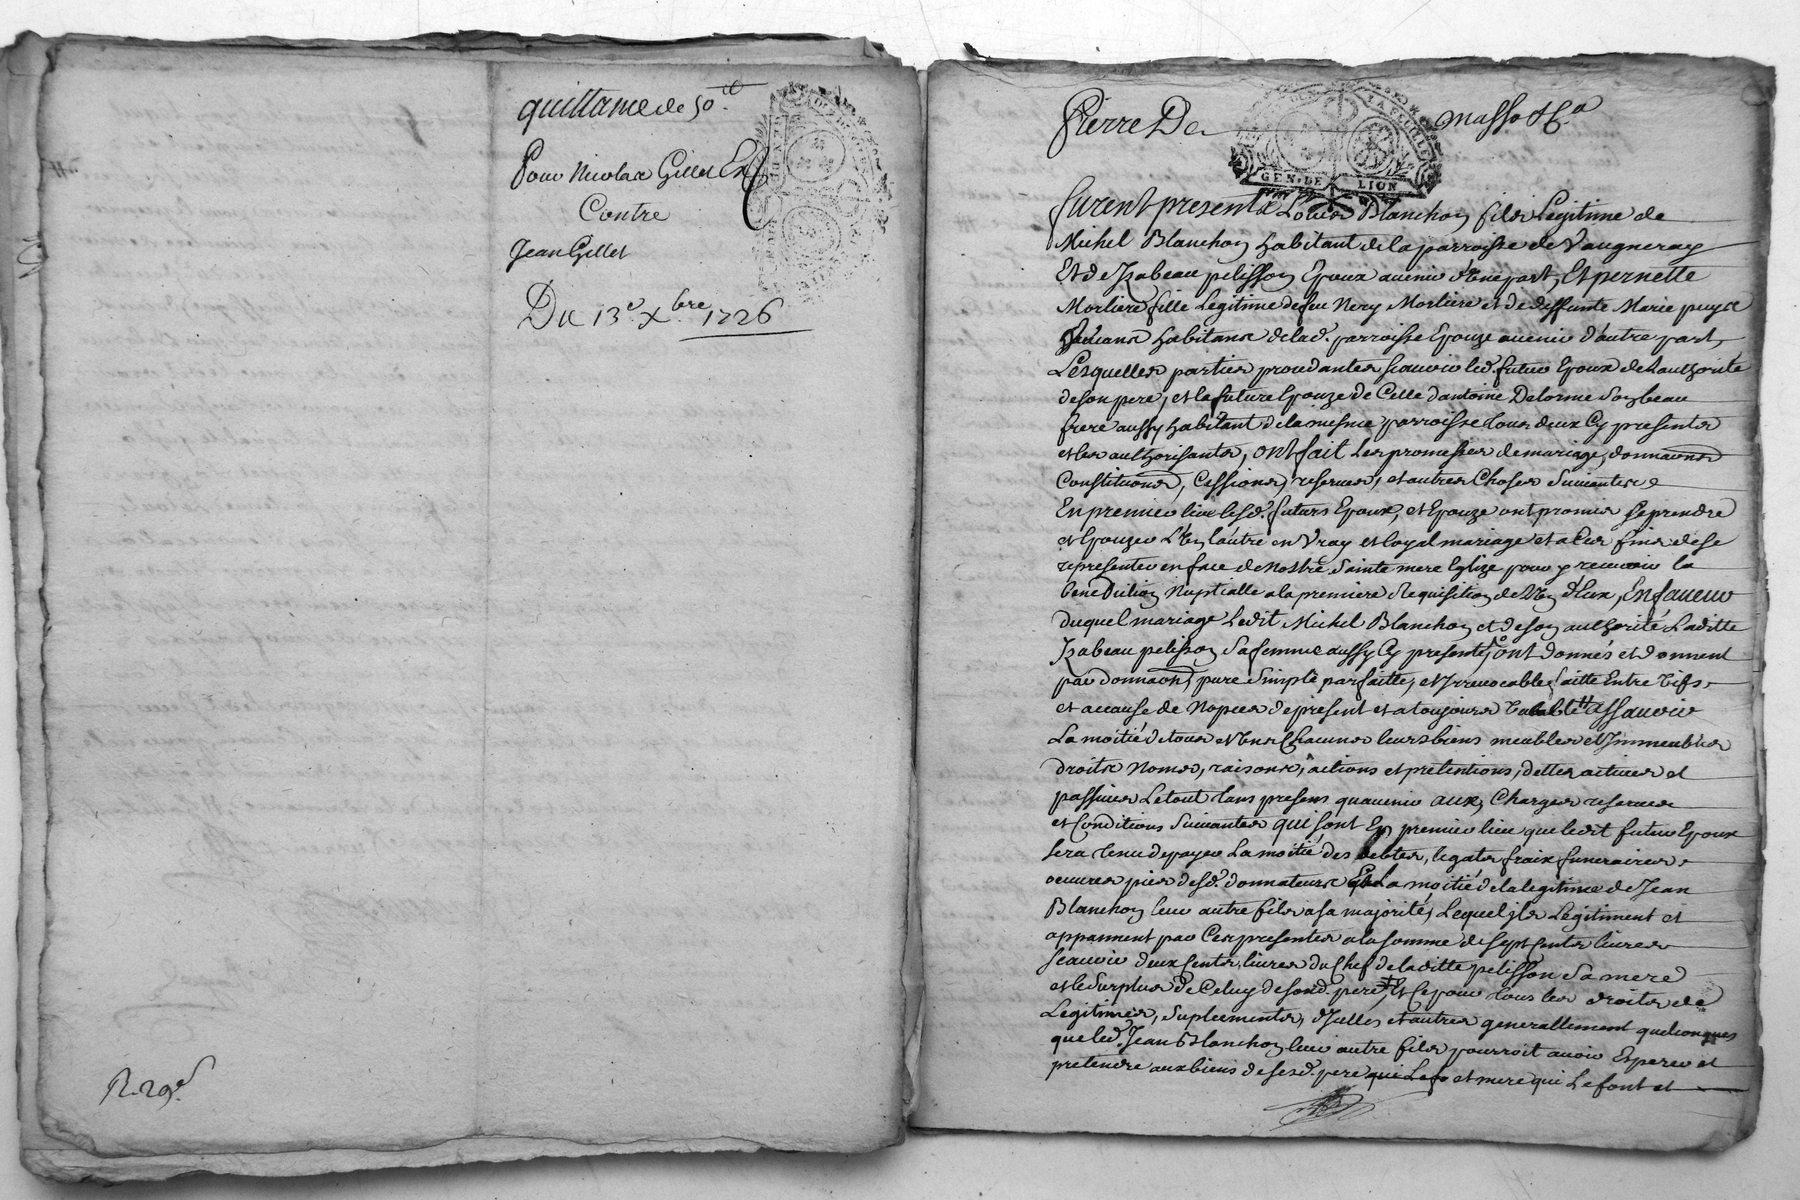 quittance de 50 ll
Pour Nicolas Gillet
Contre
Jean Gillet
Du 13e Xbre 1726
R. 29e
Pierre De masso
GEN. DE LION
furent presents Louis Blanchon fils Legitime de
Michel Blanchon habitant de la parroisse de Vaugneray
Et de Izabeau pelisson Epoux avenir d'une part, Et pernette
Morliere fille Legitime de feu Nery Morliere et de deffunte Marie
habitans de lad. parroisse Epouze avenir d'autre part,
Lesquelles parties procedantes scavoir led. futur Epoux de l'authorité
de son pere, et la future Epouze de Celle d'antoine Delorme son beau
frere aussy habitant de la mesme parroisse tous deux Cy presents
et les authorisants, ont fait Les promesses de mariage, donnaons
Constitutions, Cessions, reserves, et autres Choses Suivantes
En premier lieu lesd. futurs Epoux, et Epouze ont promis se prendre
et Epouzer L'un l'autre en Vray et loyal mariage et a Ces fins de se
representer en face de Nostre Sainte mere Eglize pour y recevoir la
benediction Nuptialle a la premiere Requisition de l'un d'Eux, En faveur
duquel mariage Ledit Michel Blanchon et de son authorité Laditte
Izabeau pelisson Sa femme aussy Cy presente, ont donnés et donnent
par donnaon pure Simple parfaitte, et Irrevocable faitte Entre vifs
et a cause de Nopces de present et a toujours Valable assavoir
La moitié de tous et Uns Chacuns leurs biens meubles et Immeubles
droits Noms, raisons, actions et pretentions, dettes actives et
passives Le tout tans presens qu'avenir aux Charges reserves
et Conditions Suivantes qui sont En premier lieu que ledit futur Epoux
sera tenu de payer La moitié des debtes, legats fraix funeraires
oeuvres pies desd. donnateurs Et La moitié de la legitime de Jean
Blanchon leur autre fils a sa majorité, Lequel ils Legitiment et
appannent par Ces presentes a la somme de sept Cents livres
scavoir deux Cents livres du Chef de laditte pelisson Sa mere
et le Surplus de Celuy de sond. pere, Et Ce pour tous les droits de
Legitimes, Suplements, d'Icelles et autres generallement quelconques
que led. Jean Blanchon leur autre fils pourroit avoir Esperer et
pretendre aux biens de sesd. pere et mere qui Le font et